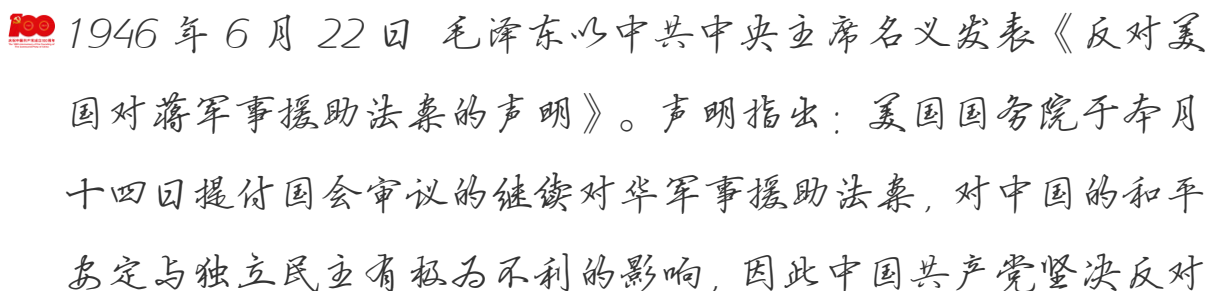 1946 年 6 月 22 日 毛泽东以中共中央主席名义发表《反对美
国对蒋军事援助法案的声明》。声明指出：美国国务院于本月
十四日提付国会审议的继续对华军事援助法案, 对中国的和平
安定与独立民主有极为不利的影响, 因此中国共产党坚决反对